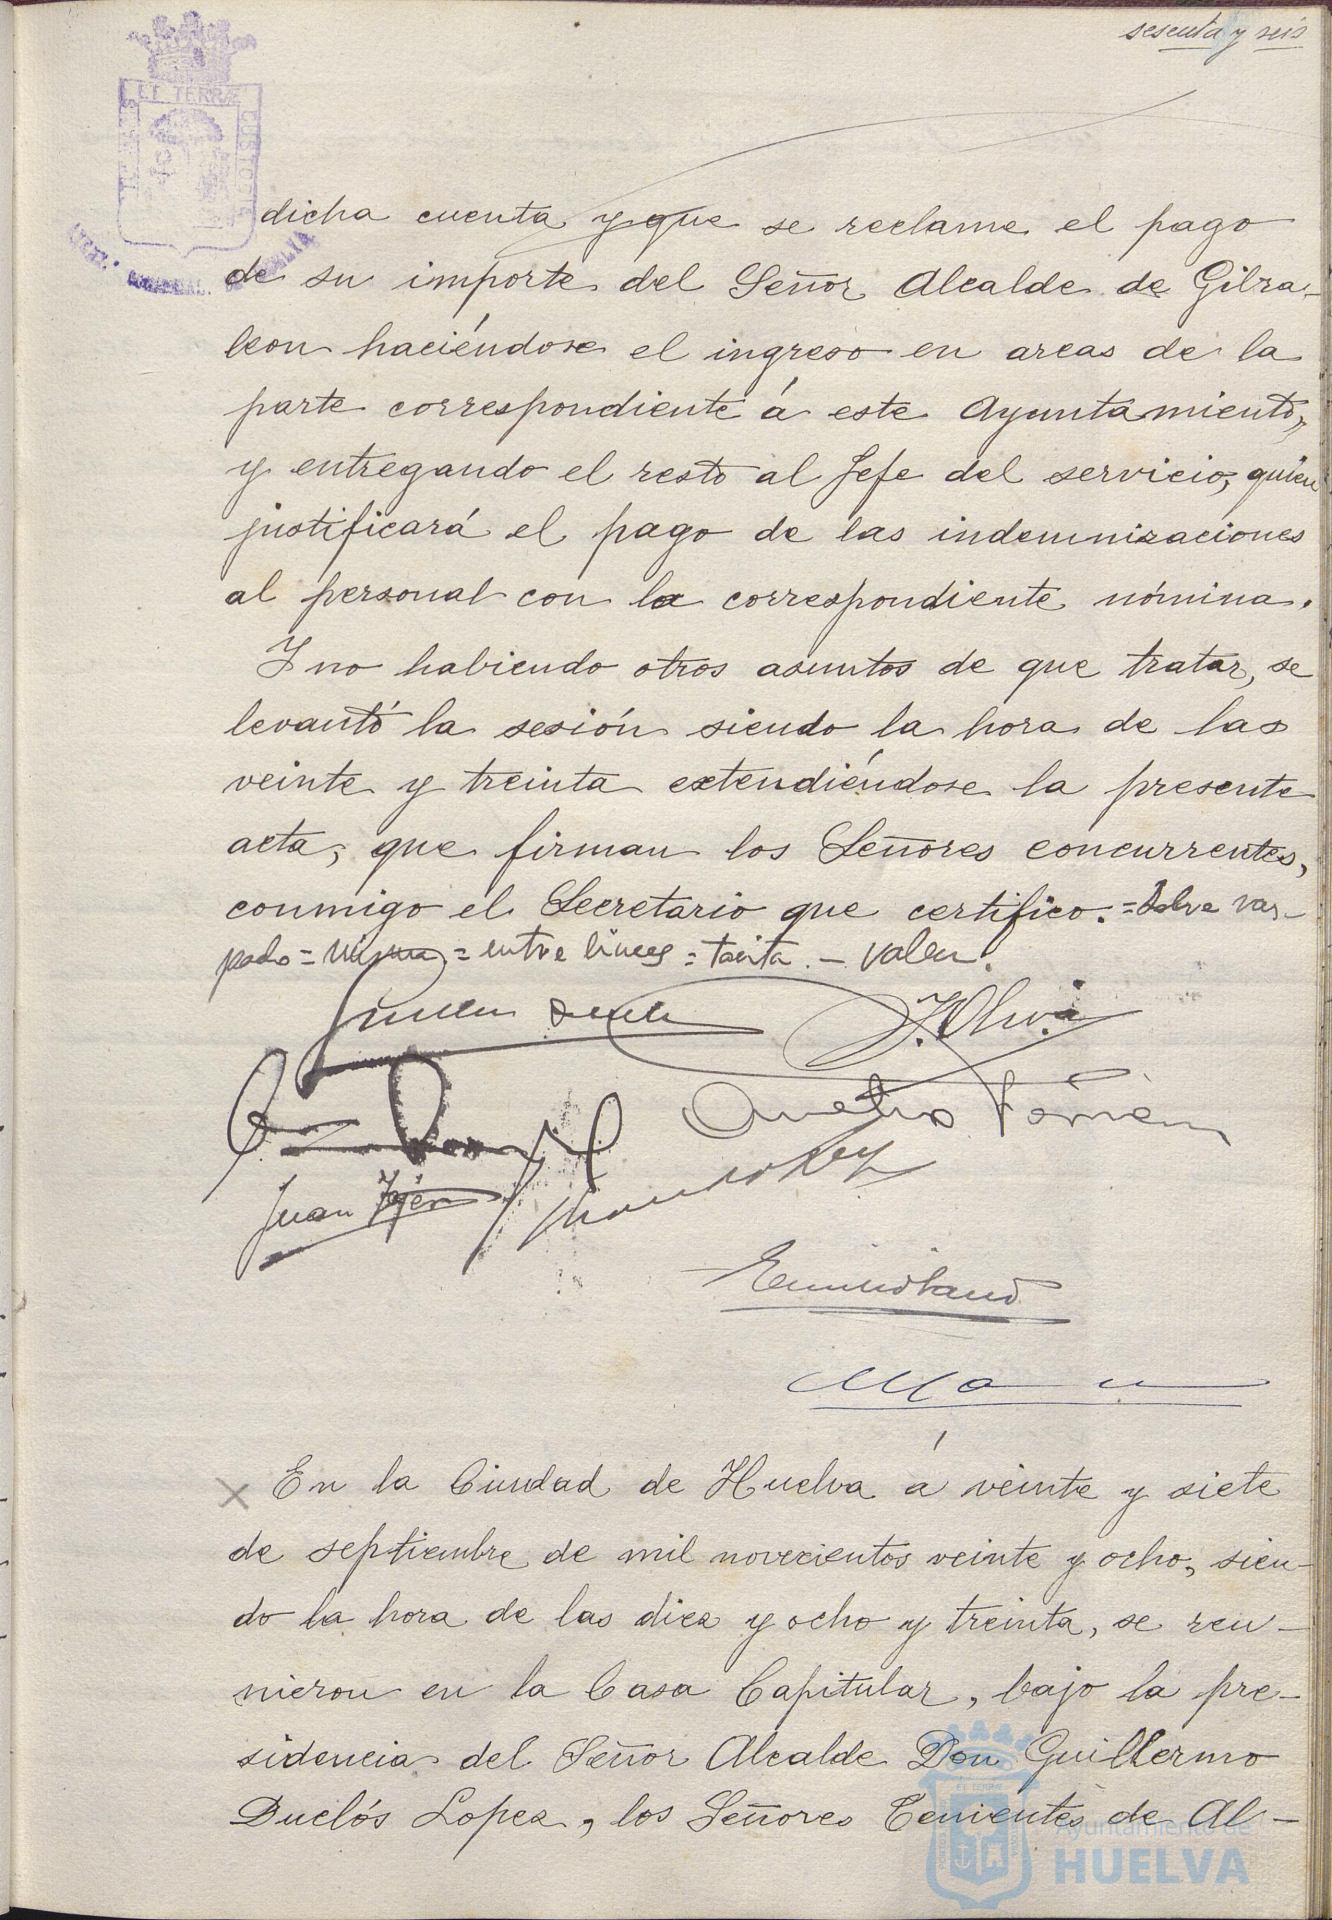 sesenta y seis
ET TERRÆ
CUSTODIT
dicha cuenta y que se reclame el pago
de su importe del Señor Alcalde de Gibra-
leon haciéndose el ingreso en arcas de la
parte correspondiente á este Ayuntamiento,
y entregando el resto al Jefe del servicio, quien
justificará el pago de las indemnizaciones
al personal con la correspondiente nómina.
Y no habiendo otros asuntos de que tratar, se
levantó la sesión siendo la hora de las
veinte y treinta extendiéndose la presente
acta, que firman los Señores concurrentes,
conmigo el Secretario que certifico. = Sobre ras-
pado = = entre lineas = tanta. - valen.
J. Oliva
Juan
En la Ciudad de Huelva á veinte y siete
de septiembre de mil novecientos veinte y ocho, sien-
do la hora de las diez y ocho y treinta, se reu-
nieron en la Casa Capitular, bajo la pre-
sidencia del Señor Alcalde Don Guillermo
Duclós Lopez, los Señores Tenientes de Al-
Ayuntamiento de
HUELVA